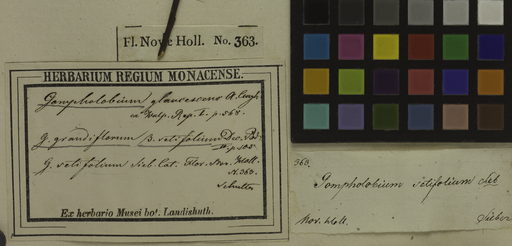 Fl. Nov. Holl. No. 363.
HERBARIUM REGIUM MONACENSE.
Gompholobium glaucescens A. Cungh.
in Walp. Rep. I. p. 568.
G. grandiflorum β. setifolium Dec. Pr.
II. p. 105.
G. setifolium Sieb. Cat. Flor. Nov. Holl.
N. 363.
Schultes
Ex herbario Musei bot. Landishuth.
363.
Gompholobium setifolium Sieb
Nov. Holl.
Sieber